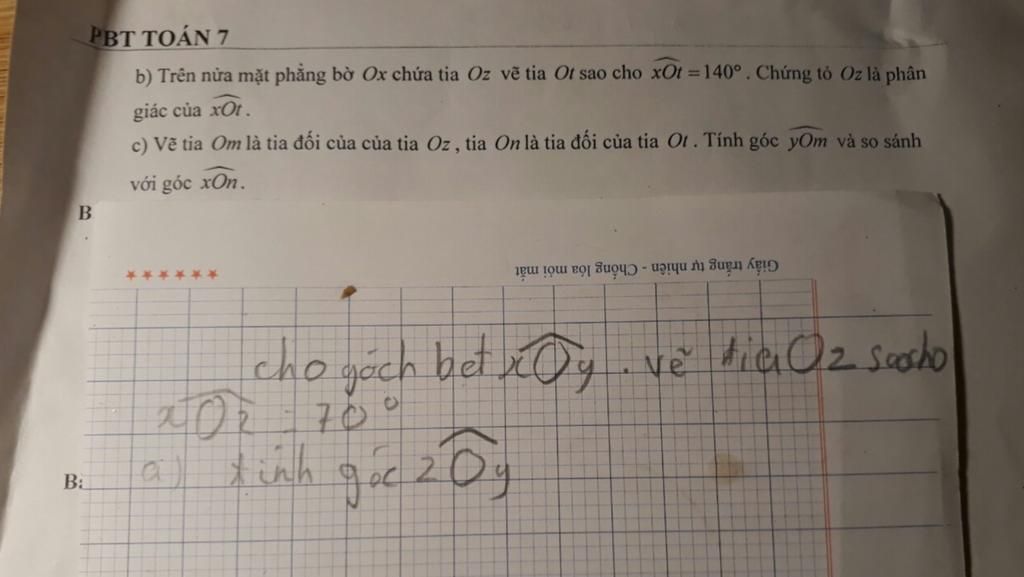 PBT TOÁN 7
b) Trên nửa mặt phẳng bờ Ox chứa tia Oz vẽ tia Ot sao cho xOt = 140°. Chứng tỏ Oz là phân
giác của xOt.
c) Vẽ tia Om là tia đối của của tia Oz, tia On là tia đối của tia Ot. Tính góc yOm và so sánh
với góc xOn.
B
Giấy trắng tự nhiên - Chống lóa mỏi mắt
cho góch bet xOy. vẽ tia Oz saocho
xOz = 70°
a) tính góc zOy
B: